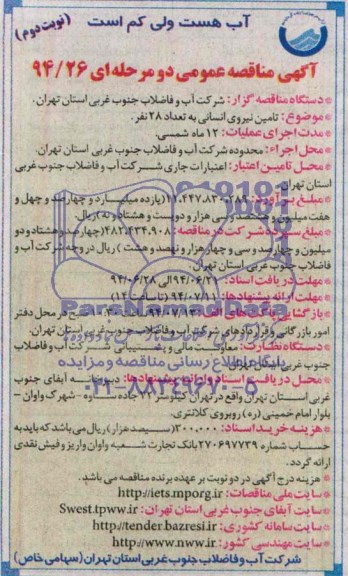 آب هست ولی کم است
(نوبت دوم)
آگهی مناقصه عمومی دو مرحله‌ای ۹۴/۲۶
* دستگاه مناقصه گزار: شرکت آب و فاضلاب جنوب غربی استان تهران.
* موضوع: تامین نیروی انسانی به تعداد ۲۸ نفر.
* مدت اجرای عملیات: ۱۲ ماه شمسی.
* محل اجراء: محدوده شرکت آب و فاضلاب جنوب غربی استان تهران.
* محل تامین اعتبار: اعتبارات جاری شرکت آب و فاضلاب جنوب غربی
استان تهران
* مبلغ برآورد: (یازده میلیارد و چهارصد و چهل و
هفت میلیون و هشتصد و سی هزار و دویست و هشتاد و نه) ریال.
* مبلغ سپرده شرکت در مناقصه: ۴۸۲،۴۳۴،۹۰۸ (چهارصد و هشتاد و دو
میلیون و چهارصد و سی و چهار هزار و نهصد و هشت) ریال در وجه شرکت آب و
فاضلاب جنوب غربی استان تهران.
* مهلت دریافت اسناد: الی ۹۴/۰۶/۲۸
* مهلت ارائه پیشنهادها: ۹۴/۰۷/۱۱ (تا ساعت ۱۴)
* بازگشایی پاکت‌های الف: ۹۴/۰۷/۱۳ صبح در محل دفتر
امور بازرگانی و قراردادهای شرکت آب و فاضلاب جنوب غربی استان تهران.
* دستگاه نظارت: معاونت مالی و پشتیبانی شرکت آب و فاضلاب
جنوب غربی استان تهران
پایگاه اطلاع رسانی مناقصه و مزایده
* محل دریافت اسناد و ارائه پیشنهادها: دبیرخانه آبفای جنوب
غربی استان تهران واقع در تهران کیلومتر جاده ساوه - شهرک واوان -
بلوار امام خمینی (ره) روبروی کلانتری.
* هزینه خرید اسناد: ۳۰۰،۰۰۰ (سیصد هزار) ریال می باشد که باید به
حساب شماره ۲۷۰۶۹۷۷۳۹ بانک تجارت شعبه واوان واریز و فیش نقدی
ارائه گردد.
* هزینه درج آگهی در دو نوبت بر عهده برنده مناقصه می باشد.
* سایت ملی مناقصات: http://iets.mporg.ir
* سایت آبفای جنوب غربی استان تهران: Swest.tpww.ir
* سایت سامانه کشوری: http://tender.bazresi.ir
* سایت مهندسی کشور: http://www.nww.ir
شرکت آب و فاضلاب جنوب غربی استان تهران (سهامی خاص)